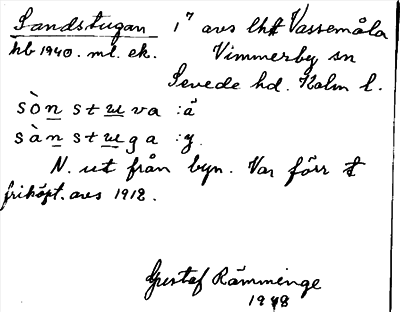 Sandstugan 1" avs lht Vassemåla
hb 1940. ml. ek. Vimmerby sn
Sevede hd. Kalm l.
sòn stuva :ä
sàn stuga :y.
N. ut från byn. Var förr t
friköpt. avs 1912.
Gustaf Rämminge
1948